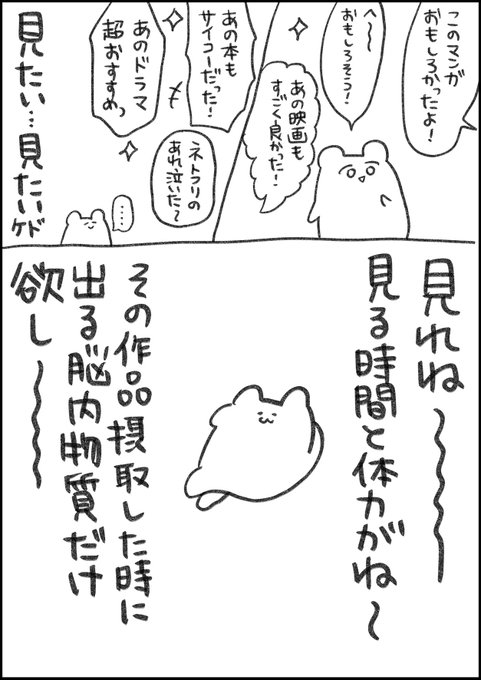 このマンガ
おもしろかったよ！
へ〜〜
おもしろそう！
あの映画も
すごく良かった！
あの本も
サイコーだった！
ネトフリの
あれ泣いた〜
あのドラマ
超おすすめ
……
見たい…見たいケド
見れね〜〜〜
見る時間と体力がね〜
その作品摂取した時に
出る脳内物質だけ
欲し〜〜〜